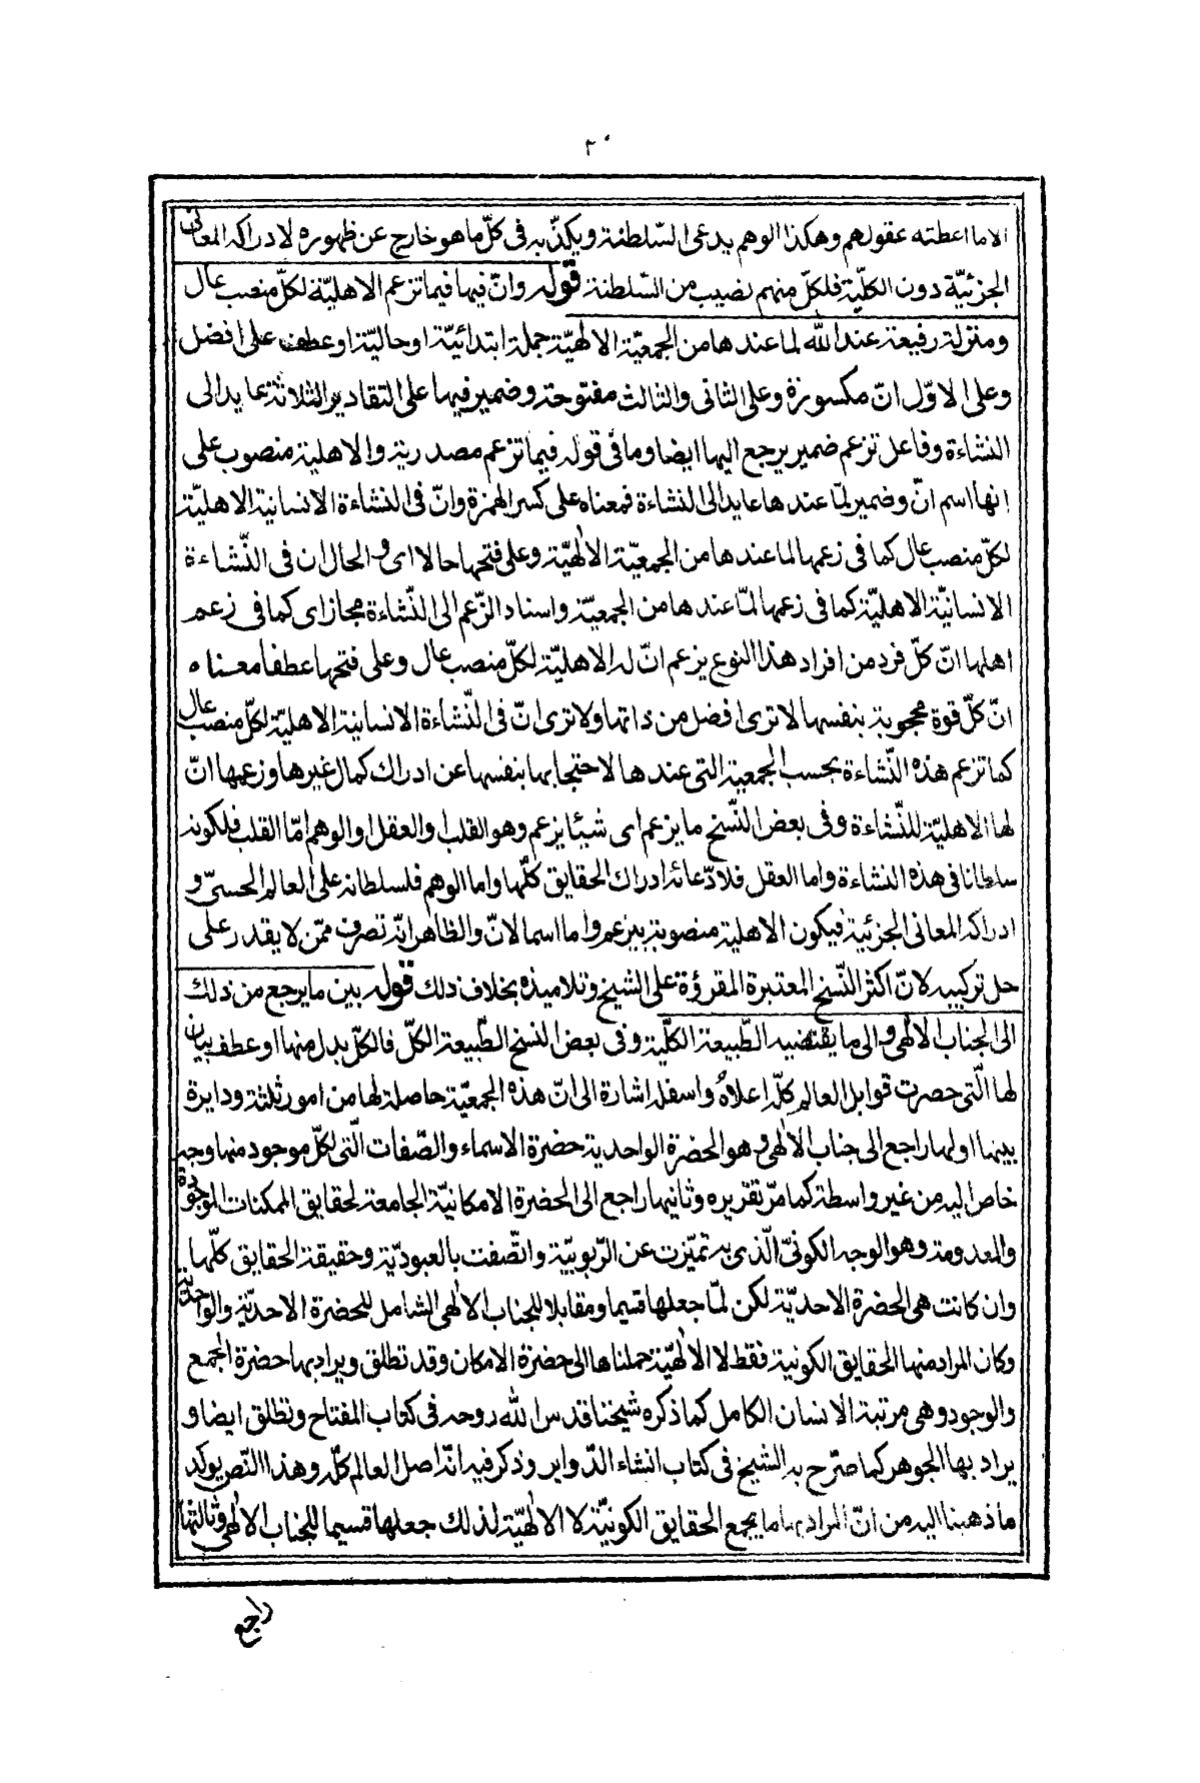 ٢٠
الا ما اعطته عقولهم وهكذا الوهم يدعى السّلطنة ويكذّبه فى كلّ ما هو خارج عن ظهوره لادراكه المعانى
الجزئيّة دون الكلّية فلكلّ منهم نصيب من السّلطنة قوله وانّ فيها فيما تزعم الاهليّة لكلّ منصب عال
ومنزلة رفيعة عند الله لما عندها من الجمعيّة الالهيّة جملة ابتدائيّة او حاليّة او عطف على افضل
وعلى الاوّل انّ مكسورة وعلى الثانى والثالث مفتوحة وضمير فيها على التقادير الثلاثة عايد الى
النشاءة وفاعل تزعم ضمير يرجع اليها ايضا وما فى قوله فيما تزعم مصدرية والاهلية منصوب على
انها اسم انّ وضمير لمّا عندها عايد الى النشاءة فمعناه على كسر الهمزة وانّ فى النشاءة الانسانية الاهليّة
لكلّ منصب عال كما فى زعمها لما عندها من الجمعيّة الالهيّة وعلى فتحها حالا اى و الحال ان فى النّشاءة
الانسانيّة الاهليّة كما فى زعمها لمّا عندها من الجمعيّة واسناد الزّعم الى النّشاءة مجاز اى كما فى زعم
اهلها انّ كلّ فرد من افراد هذا النوع يزعم انّ له الاهليّة لكلّ منصب عال وعلى فتحها عطفا معناه
انّ كلّ قوة محجوبة بنفسها لا ترى افضل من ذاتها ولا ترى انّ فى النّشاءة الانسانية الاهليّة لكلّ منصب عال
كما تزعم هذه النّشاءة بحسب الجمعية التى عندها لاحتجابها بنفسها عن ادراك كمال غيرها وزعمها انّ
لها الاهليّة للنّشاءة وفى بعض النّسخ ما يزعم اى شيئا يزعم وهو القلب او العقل او الوهم امّا القلب فلكونه
سلطانا فى هذه النشاءة واما العقل فلادّعائه ادراك الحقايق كلّها واما الوهم فلسلطانه على العالم الحسىّ و
ادراكه المعانى الجزئية فيكون الاهلية منصوبة بيزعم واما اسما لانّ والظاهر انّه تصرف ممّن لا يقدر على
حل تركيبه لانّ اكثر النّسخ المعتبرة المقرؤة على الشيخ وتلاميذه بخلاف ذلك قوله بين ما يرجع من ذلك
الى الجناب الالهى والى ما يقتضيه الطّبيعة الكلّية وفى بعض النسخ الطّبيعة الكلّ فالكلّ بدل منها او عطف بيان
لها الّتى حصرت قوابل العالم كلّه اعلاه واسفله اشارة الى انّ هذه الجمعيّة حاصلة لها من امور ثلثة ودايرة
بينها اولها راجع الى جناب الالهى وهو الحضرة الواحدية حضرة الاسماء والصّفات الّتى لكلّ موجود منها وجه
خاص اليه من غير واسطة كما مرّ تقريره وثانيها راجع الى الحضرة الامكانيّة الجامعة لحقايق الممكنات الموجودة
والمعدومة وهو الوجه الكونىّ الّذى به تميّزت عن الرّبوبيّة واتّصفت بالعبوديّة وحقيقة الحقايق كلّها
وان كانت هى الحضرة الاحديّة لكن لمّا جعلها قسيما ومقابلا للجناب الالهى الشامل للحضرة الاحديّة والواحديّة
وكان المراد منها الحقايق الكونية فقط لا الالهيّة حملناها الى حضرة الامكان وقد تطلق ويراد بها حضرة الجمع
والوجود وهى مرتبة الانسان الكامل كما ذكره شيخنا قدس الله روحه فى كتاب المفتاح وتطلق ايضا و
يراد بها الجوهر كما صرّح به الشيخ فى كتاب انشاء الدّواير وذكر فيه انّه اصل العالم كلّه وهذا النّص يوكد
ما ذهبنا اليه من انّ المراد بها ما يجمع الحقايق الكونيّة لا الالهيّة لذلك جعلها قسيما للجناب الالهى وثالثها
راجع